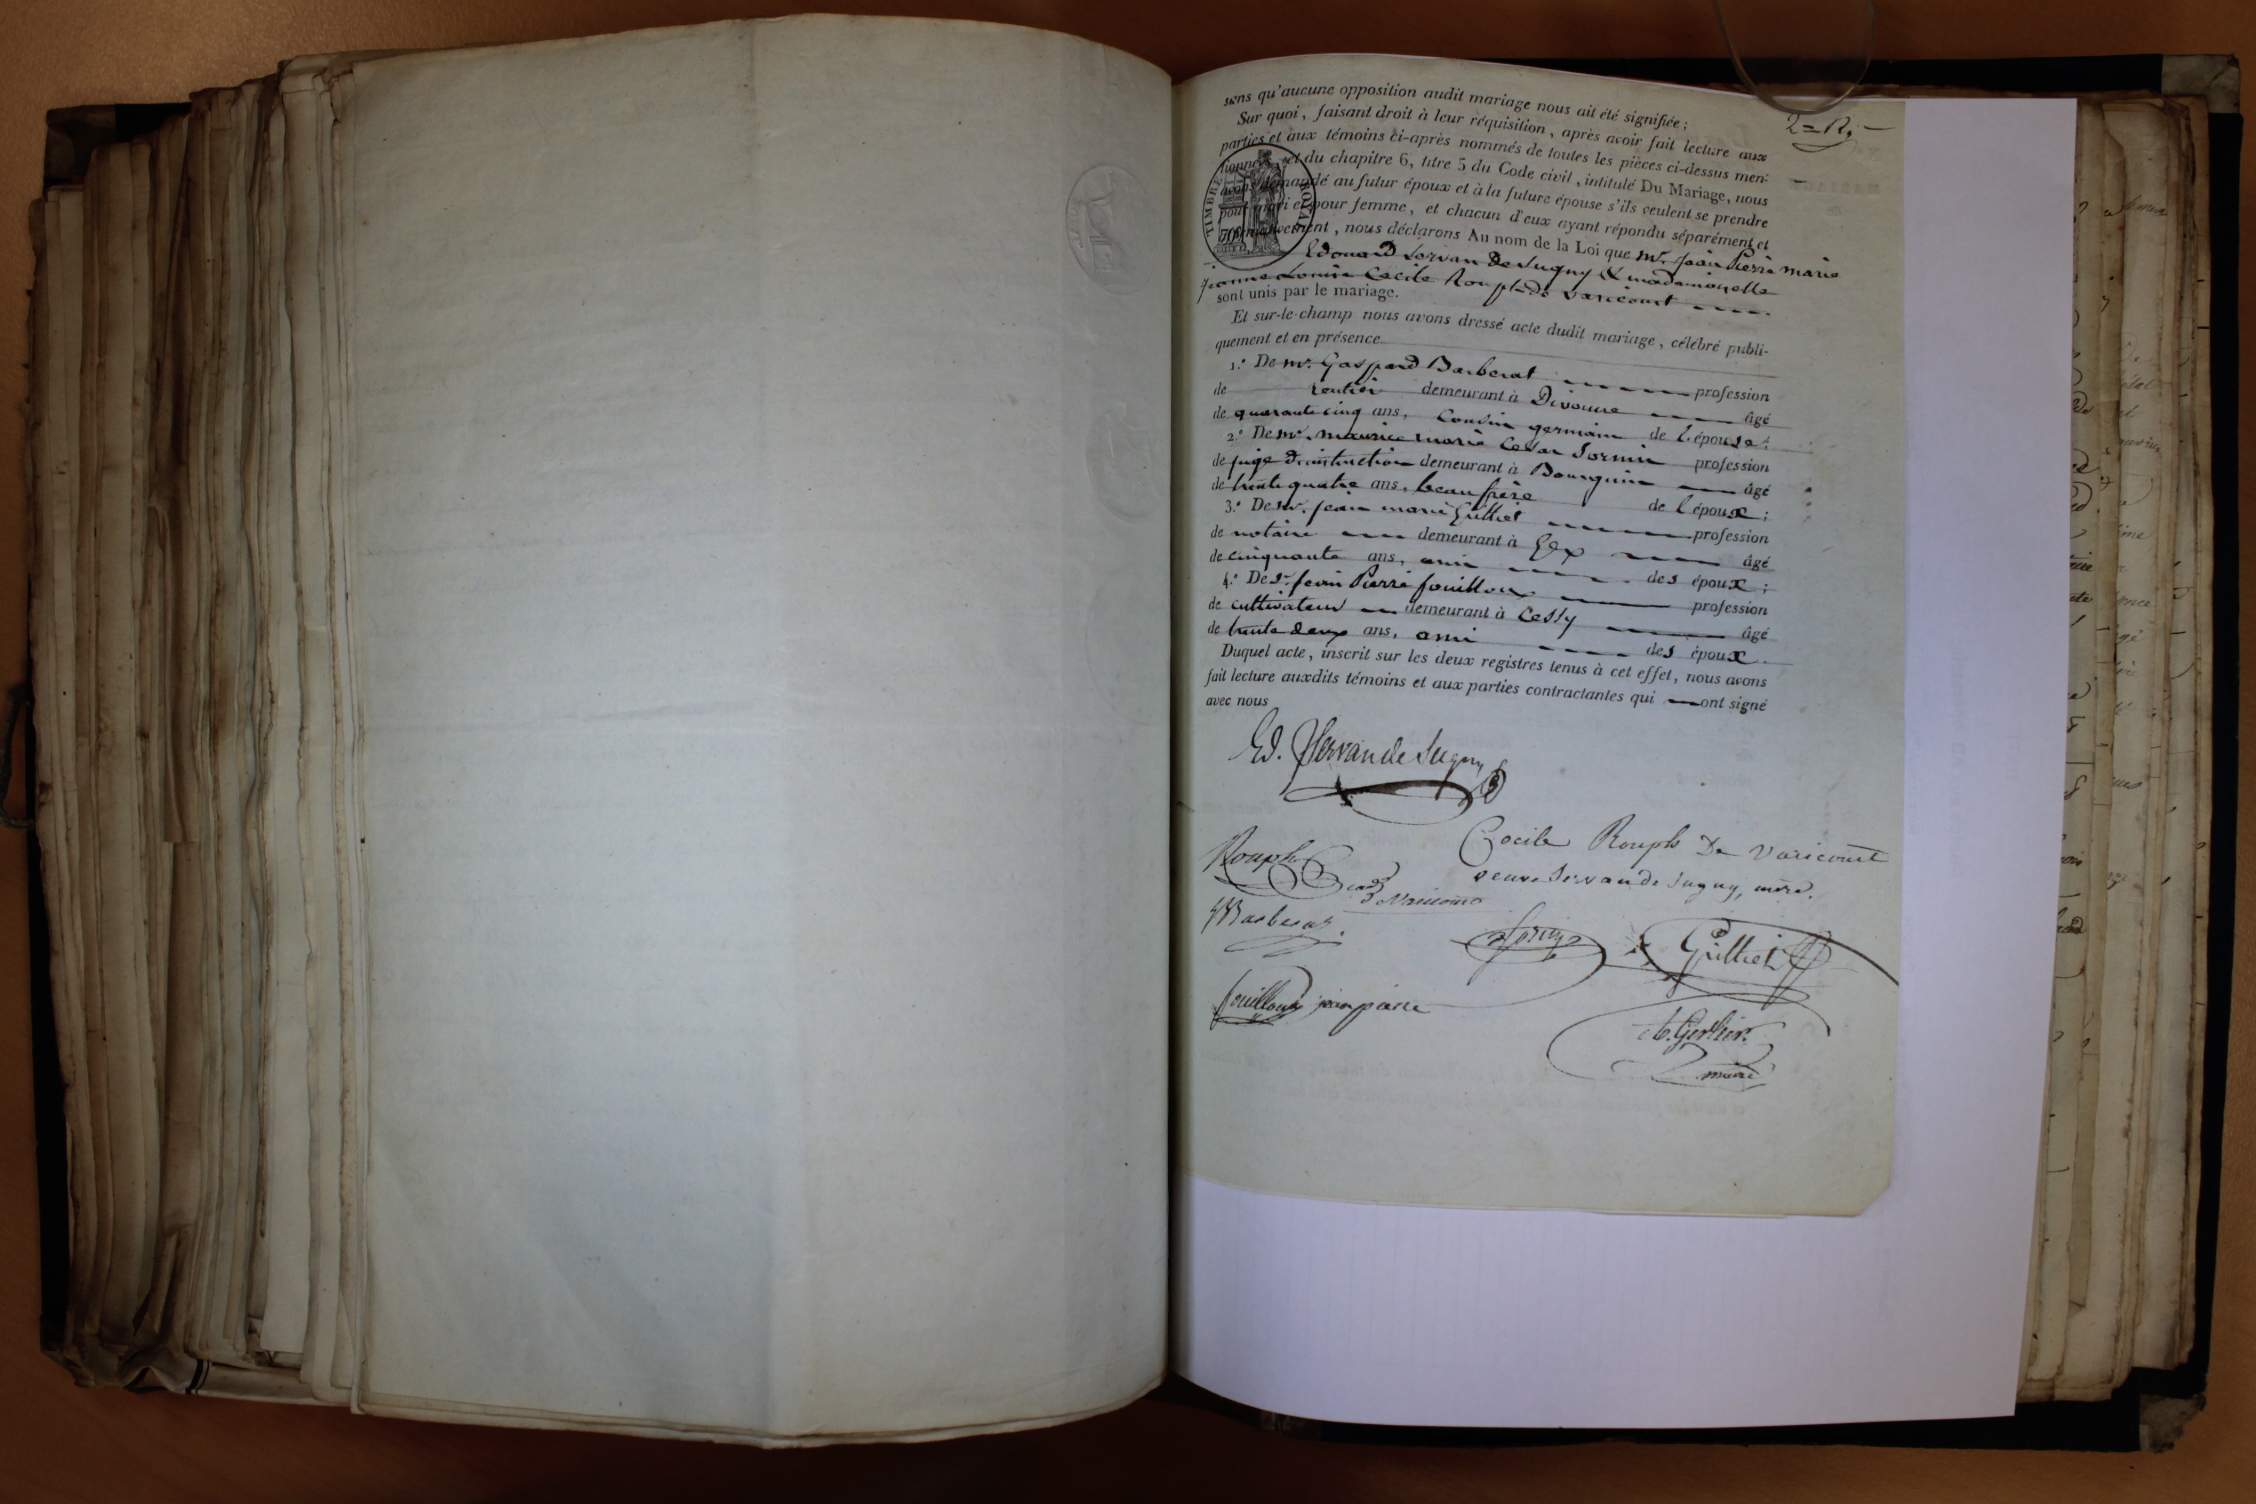 2 = R,
sans qu'aucune opposition audit mariage nous ait été signifiée;
Sur quoi, faisant droit à leur réquisition, après avoir fait lecture aux
parties et aux témoins ci-après nommés de toutes les pièces ci-dessus men-
tionnées, et du chapitre 6, titre 5 du Code civil, intitulé Du Mariage, nous
avons demandé au futur époux et à la future épouse s'ils veulent se prendre
pour mari et pour femme, et chacun d'eux ayant répondu séparément et
affirmativement, nous déclarons Au nom de la Loi que mr. jean Pierre marie
TIMBRE ROYAL
70
Edouard Servan de Sugny & mademoiselle
jeanne Louise Cecile Rouph de Varicourt
sont unis par le mariage.
Et sur-le-champ nous avons dressé acte dudit mariage, célébré publi-
quement et en présence
1.º De mr. Gaspard Barberat profession
de rentier demeurant à Divonne âgé
de quarante cinq ans, cousin germain de l'épouse;
2.º De mr. maurice marie Cesar Sornin profession
de juge d'instruction demeurant à Bourgoin âgé
de trente quatre ans, beaufrère de l'époux;
3.º De mr. jean marie Gilliet profession
de notaire demeurant à Gex âgé
de cinquante ans, ami des époux;
4.º De sr. jean Pierre fouilloux profession
de cultivateur demeurant à Cessy âgé
de trente deux ans, ami des époux.
Duquel acte, inscrit sur les deux registres tenus à cet effet, nous avons
fait lecture auxdits témoins et aux parties contractantes qui ont signé
avec nous
Ed. Servan de Sugny
Cecile Rouph De Varicourt
Rouph de Varicourt
veuve Servan de Sugny, mère.
Barberat
Gilliet
fouilloux jean pierre
Gerlier
maire